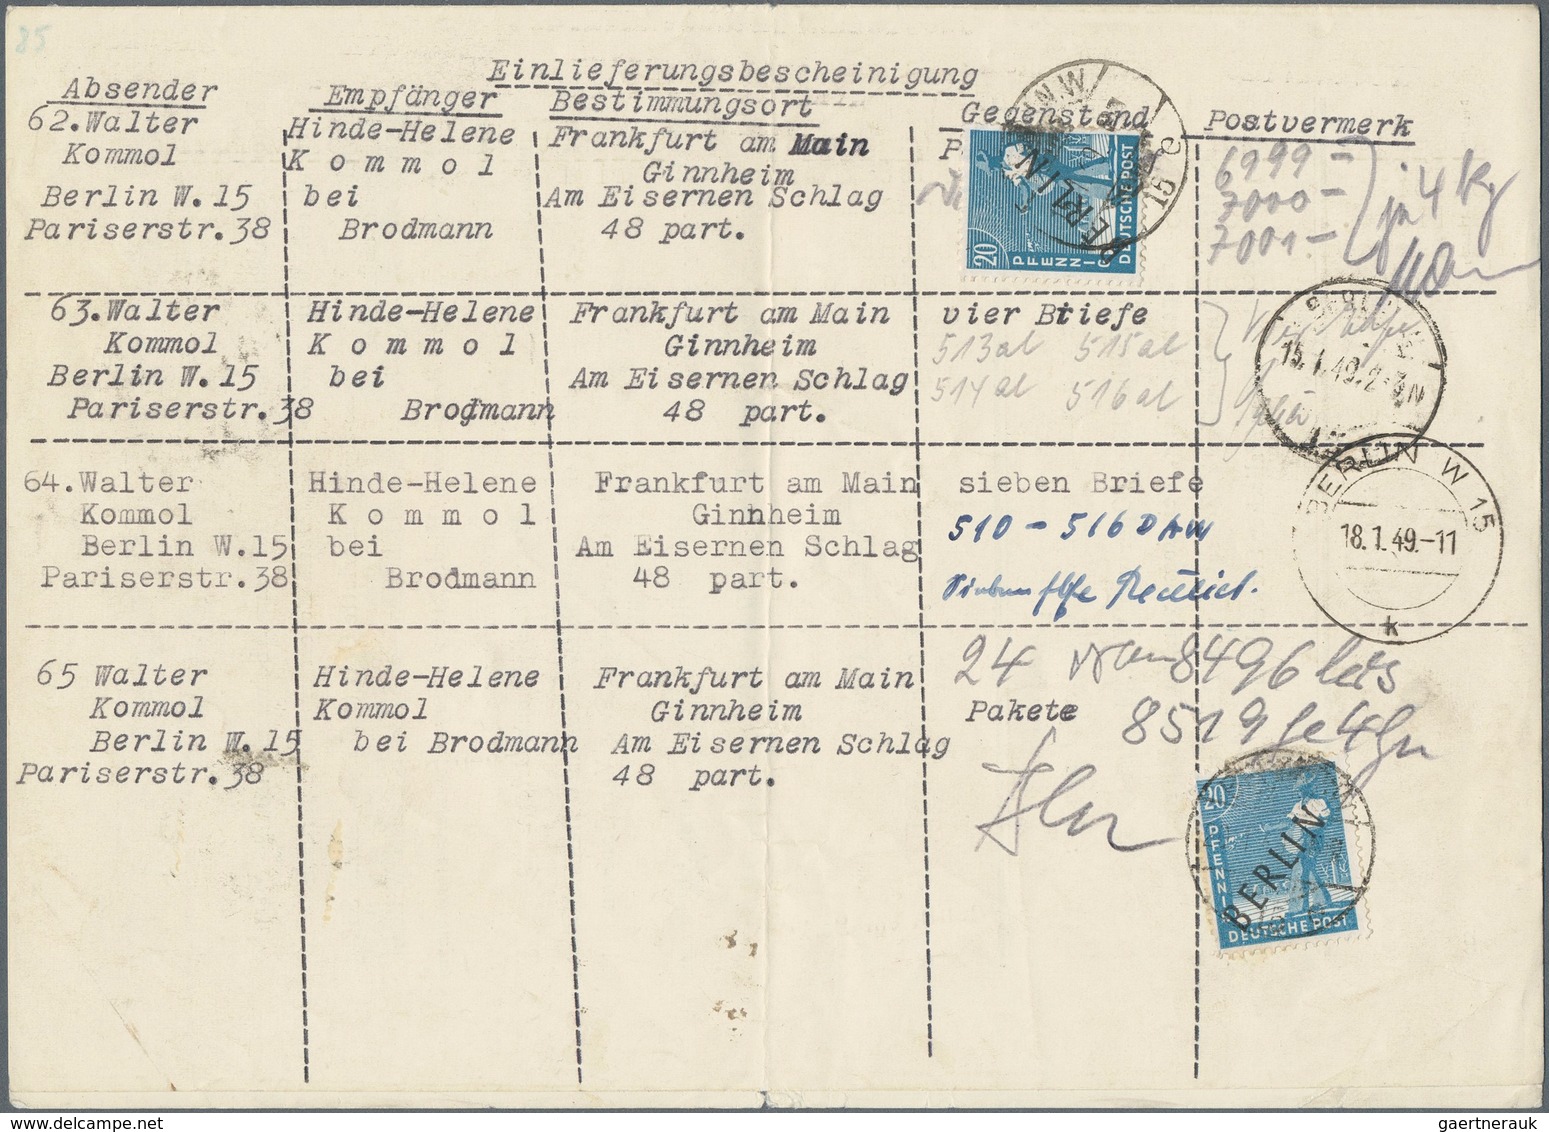 85
Einlieferungsbescheinigung
Absender Empfänger Bestimmungsort Gegenstand Postvermerk
62.Walter Hinde-Helene Frankfurt am Main P 6999 -
Kommol K o m m o l Ginnheim 7000 - je 4 kg
Berlin W.15 bei Am Eisernen Schlag 7001 -
Pariserstr.38 Brodmann 48 part.
BERLIN
20 PFENNIG
DEUTSCHE POST
15 e
63.Walter Hinde-Helene Frankfurt am Main vier Briefe
Kommol K o m m o l Ginnheim 513 al 515 al
Berlin W.15 bei Am Eisernen Schlag 514 al 516 al
Pariserstr.38 Brodmann 48 part.
15.1.49.
64.Walter Hinde-Helene Frankfurt am Main sieben Briefe
Kommol K o m m o l Ginnheim 510 - 516
Berlin W.15 bei Am Eisernen Schlag
Pariserstr.38 Brodmann 48 part.
BERLIN W 15
18.1.49.-11
k
65 Walter Hinde-Helene Frankfurt am Main 24 8496 bis
Kommol Kommol Ginnheim Pakete 8519
Berlin W.15 bei Brodmann Am Eisernen Schlag
Pariserstr.38 48 part.
20
PFENNIG
BERLIN
DEUTSCHE POST
gaertnerauk